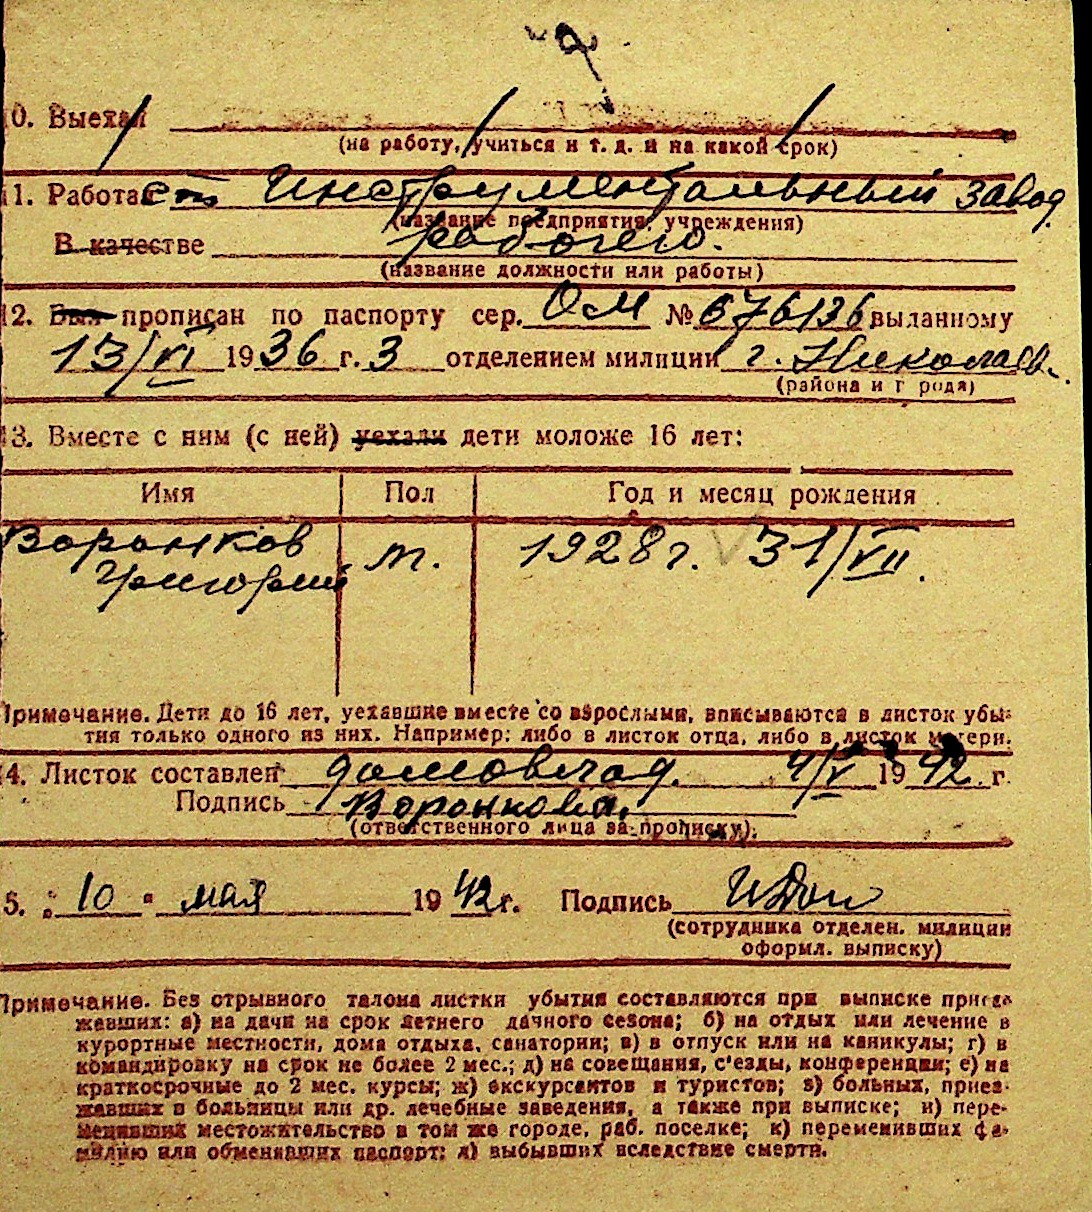 0. Выехал
(на работу, учиться и т. д. и на какой срок)
1. Работает Инструментальный завод
(название предприятия, учреждения)
В качестве рабочего.
(название должности или работы)
2. Был прописан по паспорту сер. ОМ № 676136 выданному
13/VI 1936 г. 3 отделением милиции г. Николаев
(района и г рода)
3. Вместе с ним (с ней) уехали дети моложе 16 лет:
Имя Пол Год и месяц рождения
Воронков м. 1928 г. 31/VII.
Григорий
Примечание. Дети до 16 лет, уехавшие вместе со взрослыми, вписываются в листок убы-
тия только одного из них. Например: либо в листок отца, либо в листок матери.
4. Листок составлен 4/V 1942 г.
Подпись Воронкова.
(ответственного лица за прописку).
5. " 10 " мая 1942 г. Подпись
(сотрудника отделен. милиции
оформл. выписку)
Примечание. Без отрывного талона листки убытия составляются при выписке приез-
жавших: а) на дачи на срок летнего дачного сезона; б) на отдых или лечение в
курортные местности, дома отдыха, санатории; в) в отпуск или на каникулы; г) в
командировку на срок не более 2 мес.; д) на совещания, с'езды, конференции; е) на
краткосрочные до 2 мес. курсы; ж) экскурсантов и туристов; з) больных, приез-
жавших в больницы или др. лечебные заведения, а также при выписке; и) пере-
менивших местожительство в том же городе, раб. поселке; к) переменивших фа-
милию или обменявших паспорт; л) выбывших вследствие смерти.